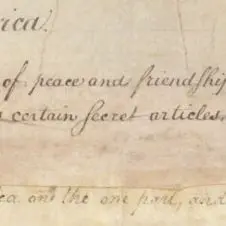 rica.
of peace and friendship
certain secret articles,
ca on the one part, and